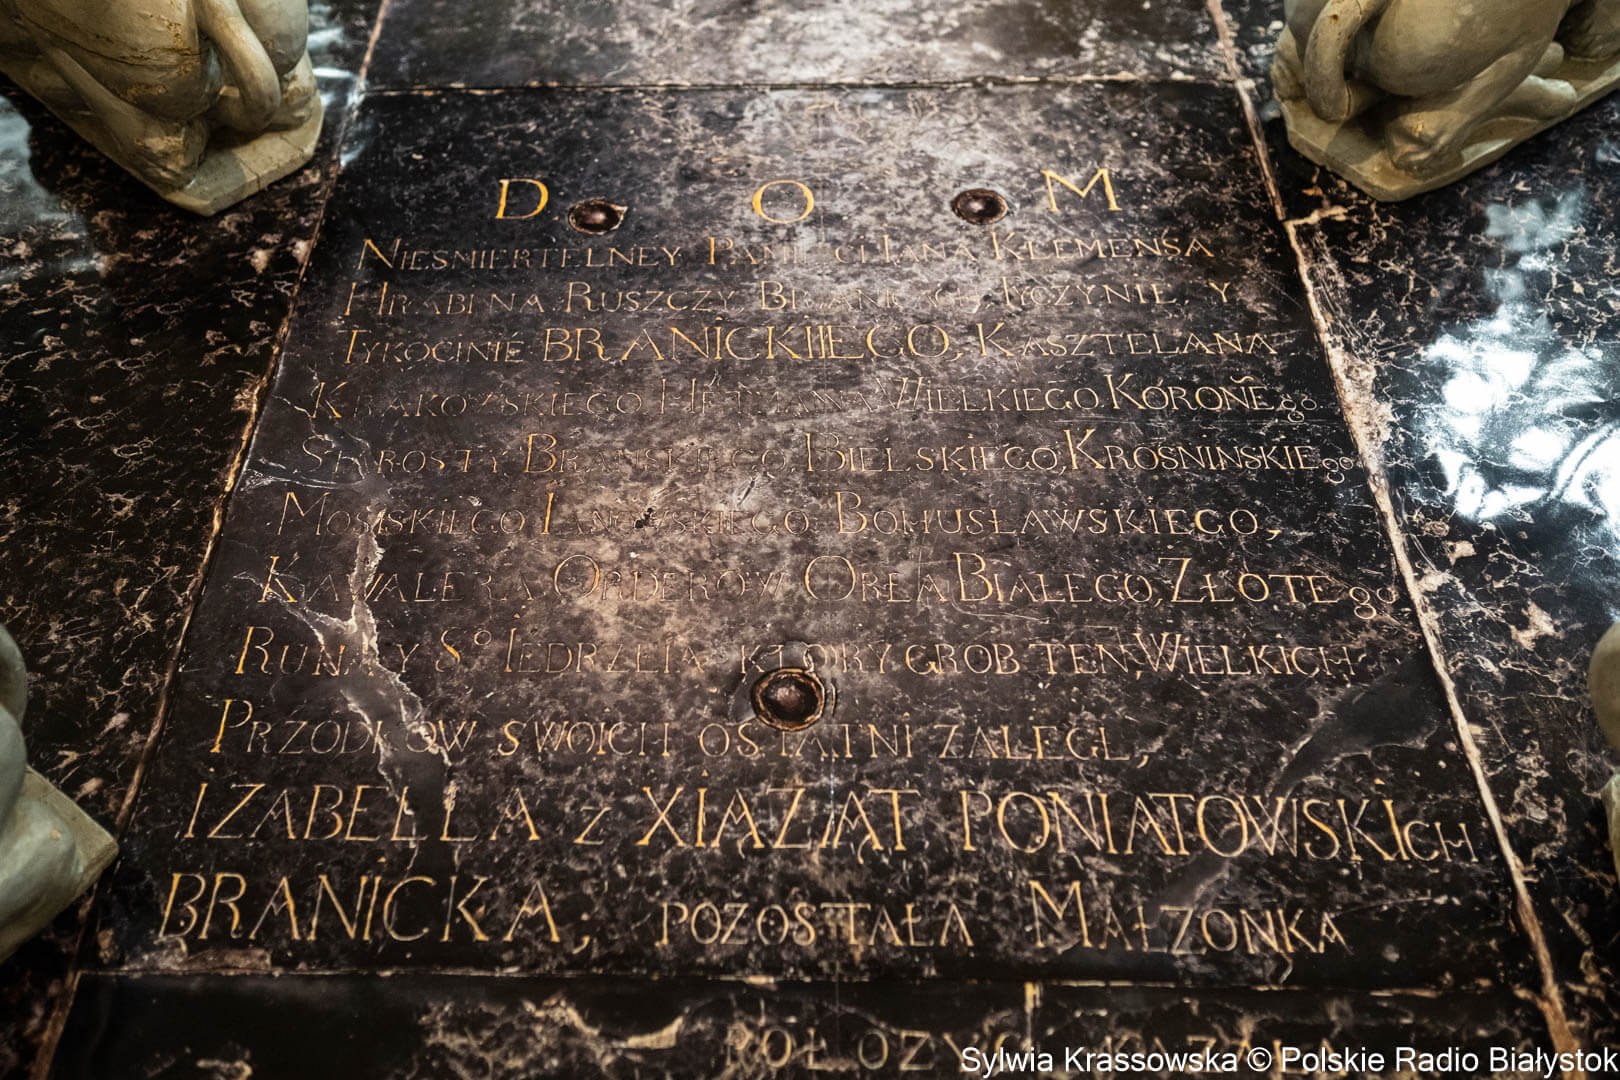 D. O M
NIESMIERTELNEY PAMIĘCI IANA KLEMENSA
HRABI NA RUSZCZY, TYCZYNIE, Y
TYKOCINIE BRANICKIIEGO, KASZTELANA
KRAKOWSKIEGO, HETMANA WIELKIEGO, KORONÑEgo
STAROSTY BRANSKIEGO, BIELSKIEGO, KROSNINSKIEgo
MOSCISKIEGO IANOWSKIEGO BOHUSŁAWSKIEGO,
KAWALERA ORDEROW ORŁA BIAŁEGO, ZŁOTEgo
RUNA, Y So IĘDRZEIA, KTÓRY GROB TEN, WIELKICH
PRZODKÓW SWOICH OSTATNI ZALEGŁ,
IZABELLA z XIĄŻĄT PONIATOWSKICH
BRANICKA, POZOSTAŁA MAŁZONKA
POŁOZYC KAZAŁA
Sylwia Krassowska © Polskie Radio Białystok